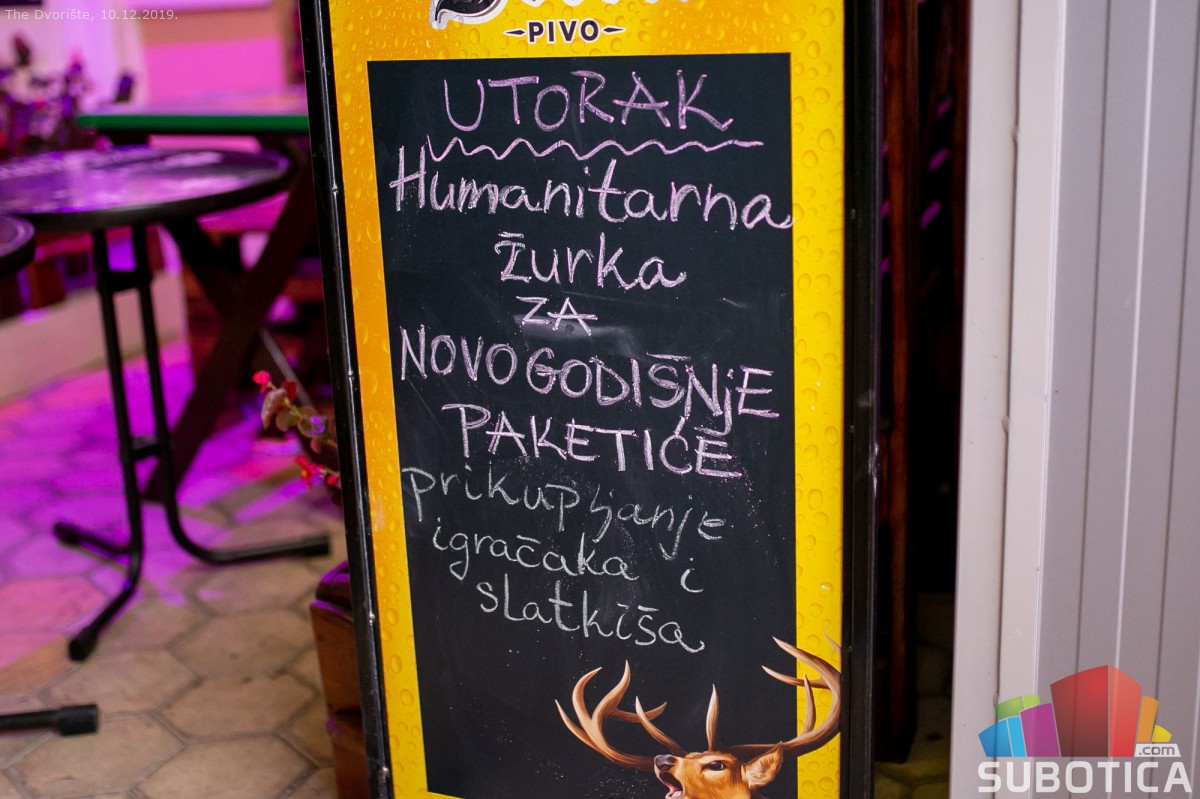 The Dvorište, 10.12.2019.
PIVO
UTORAK
Humanitarna
žurka
ZA
NOVOGODIŠNjE
PAKETIĆE
prikupljanje
igračaka i
slatkiša
.com
SUBOTICA